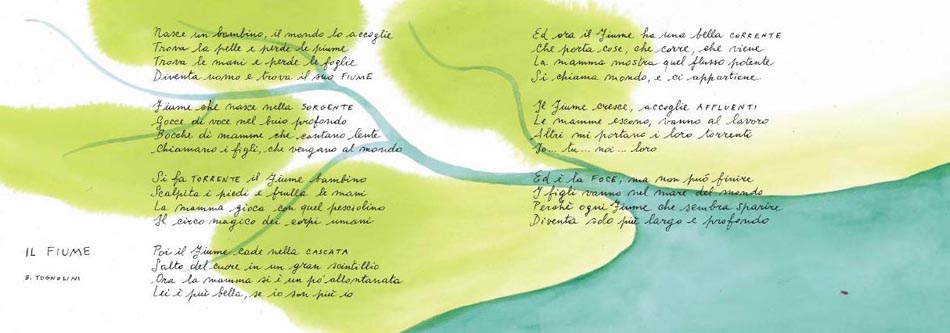 IL FIUME
B. TOGNOLINI
Nasce un bambino, il mondo lo accoglie
Trova la pelle e perde le piume
Trova le mani e perde le foglie
Diventa uomo e trova il suo FIUME
Fiume che nasce nella SORGENTE
Gocce di voce nel buio profondo
Bocche di mamme che cantano lente
Chiamano i figli, che vengano al mondo
Si fa TORRENTE il Fiume bambino
Scalpita i piedi e frulla le mani
La mamma gioca con quel pesciolino
Il circo magico dei corpi umani
Poi il Fiume cade nella CASCATA
Salto del cuore in un gran scintillio
Ora la mamma si è un po' allontanata
Lei è più bella, se io son più io
Ed ora il Fiume ha una bella CORRENTE
Che porta cose, che corre, che viene
La mamma mostra quel flusso potente
Si chiama mondo, e ci appartiene
Il Fiume cresce, accoglie AFFLUENTI
Le mamme escono, vanno al lavoro
Altri mi portano i loro torrenti
Io... tu... noi... loro
Ed è la FOCE, ma non può finire
I figli vanno nel mare del mondo
Perché ogni Fiume che sembra sparire
Diventa solo più largo e profondo